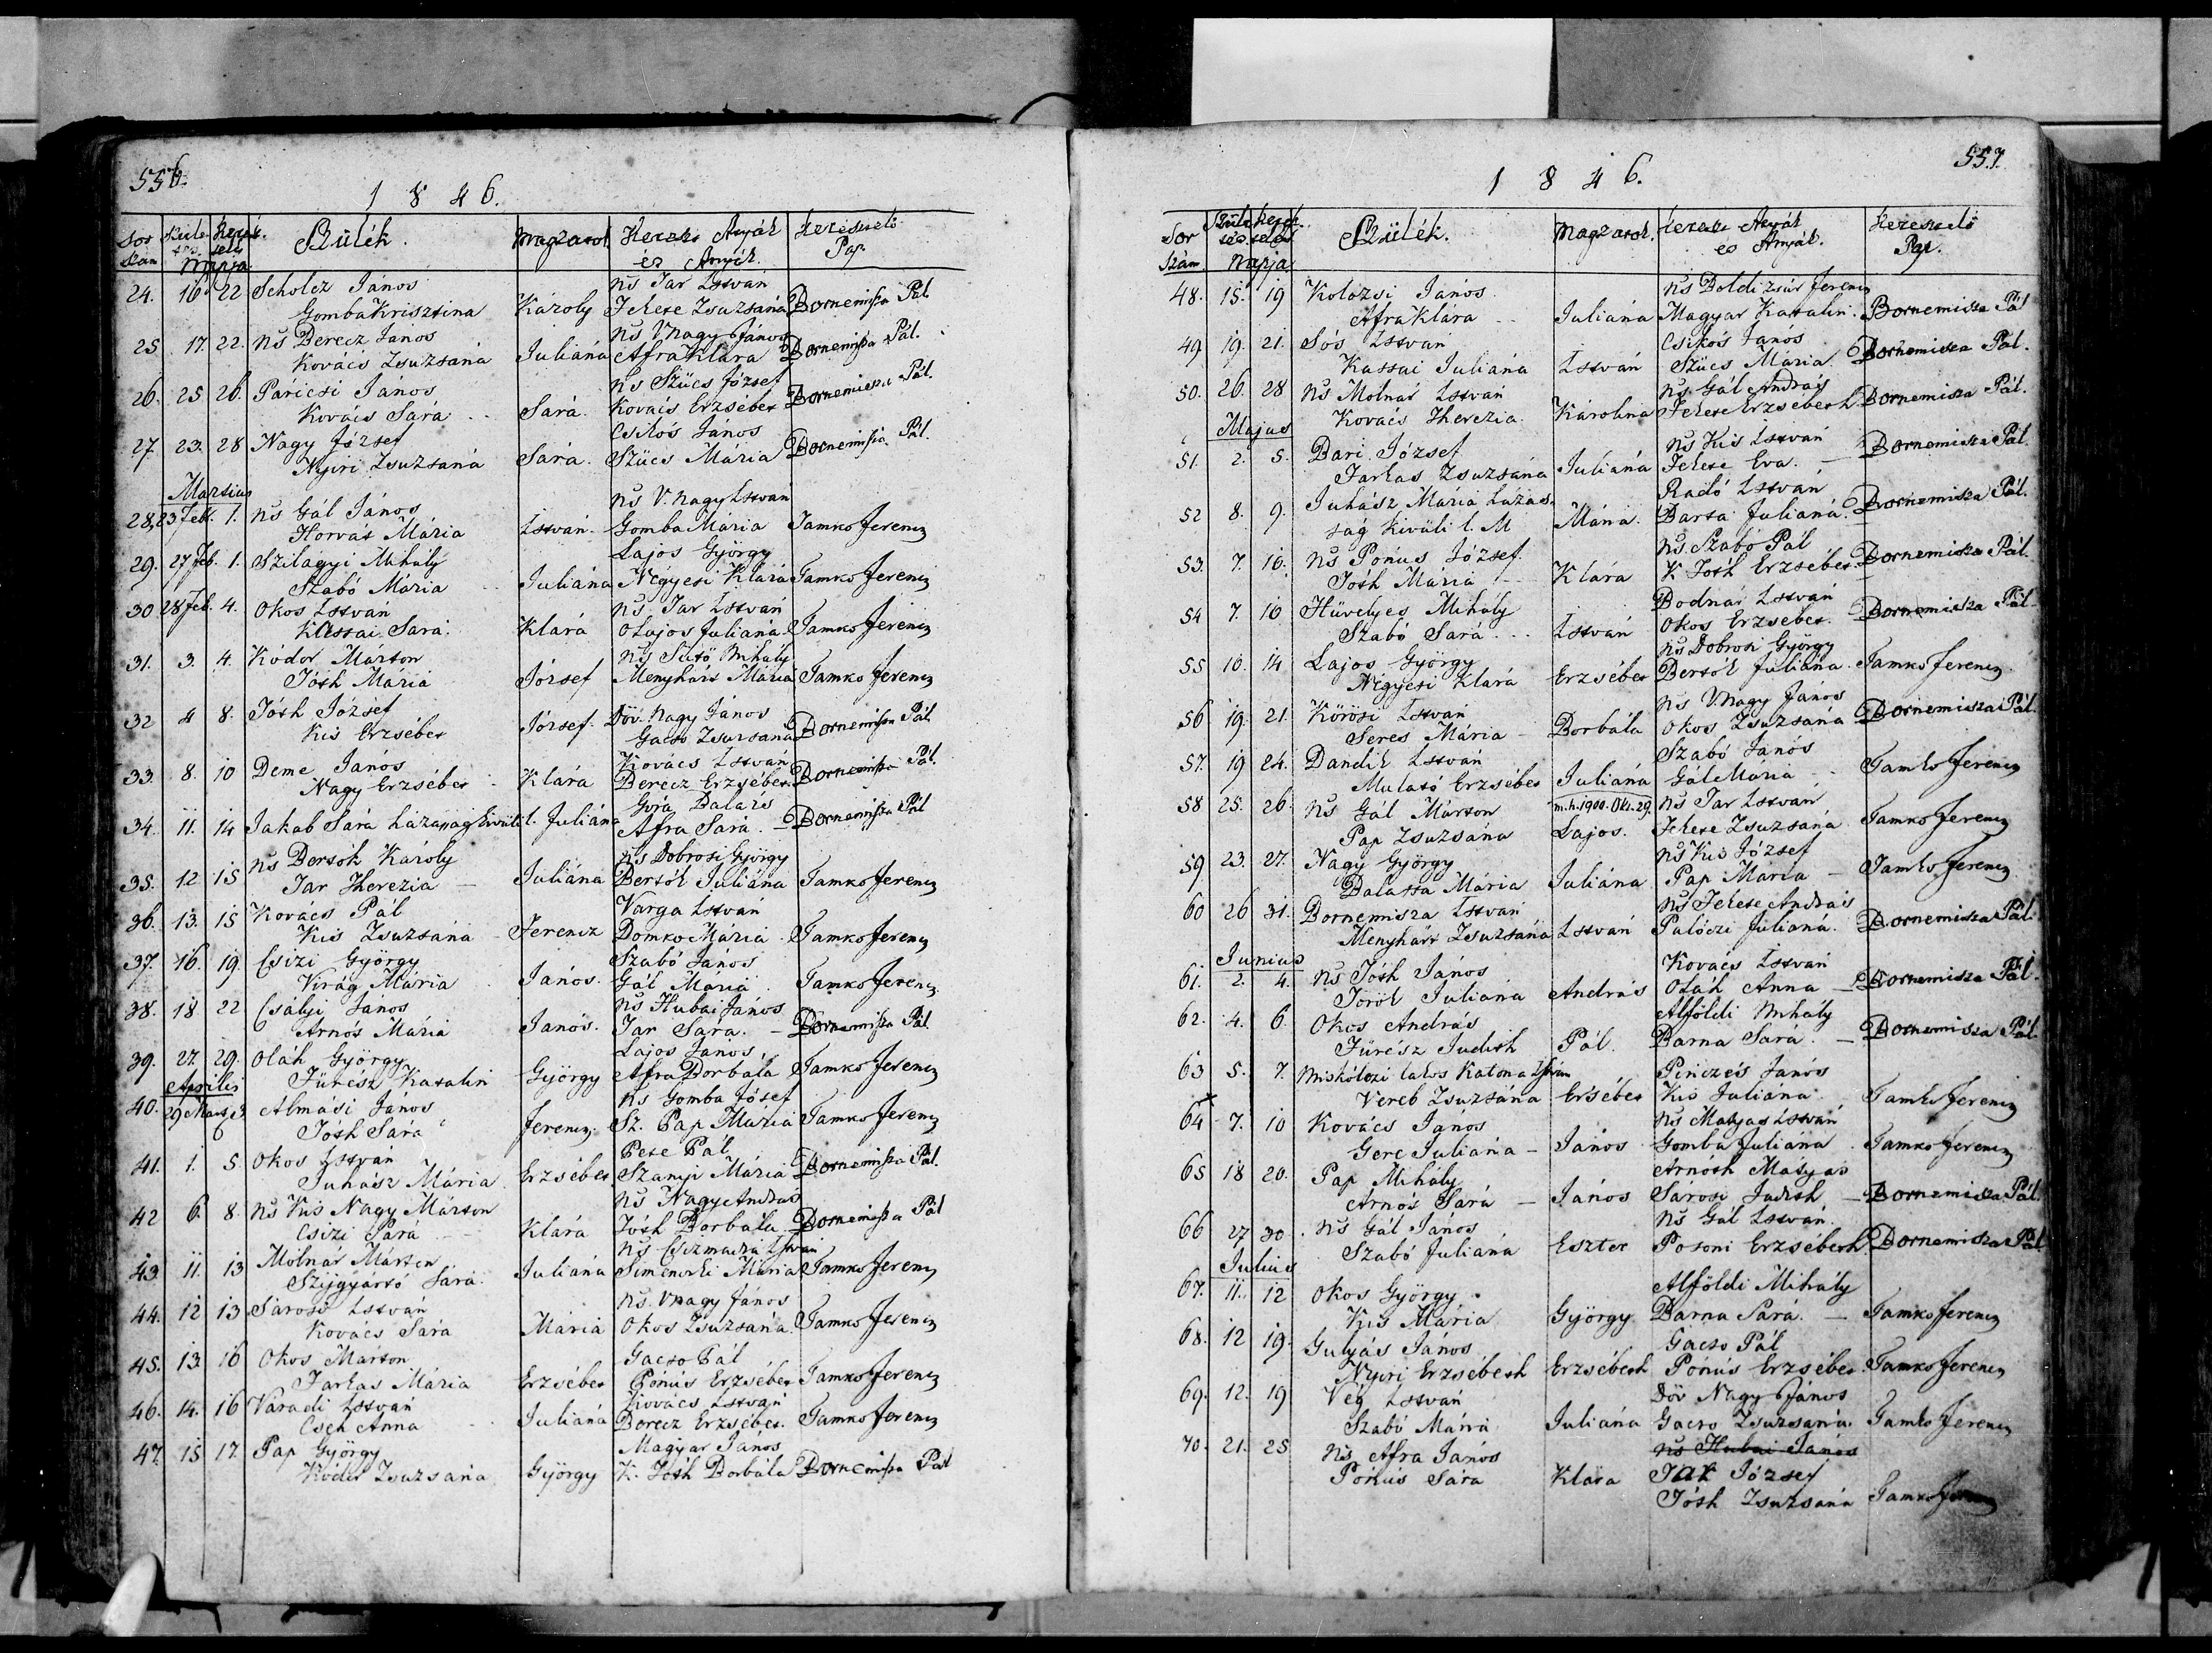 556.
1846.
Sor szám Születés Keresztelés Napja Szülék. Magzatok Kereszt Atyák és Anyák. Keresztelő Pap.
24. 16 22 Scholcz János Ns Tar István
Gomba Krisztina Károly Fekete Zsuzsána Bornemisza Pál
25 17. 22. Ns Berecz János Ns V. nagy János
Kovács Zsuzsána Juliána Afra Klára Bornemisza Pál.
26. 25 26. Páricsi János Ns Szücs József
Kovács Sára Sára. Kovács Erzsébet Bornemisza Pál.
27. 23. 28 Nagy József Csikós János
Nyiri Zsuzsána Sára. Szücs Mária Bornemisza Pál.
Martius
28. 23 Feb. 1. Ns Gál János Ns V. nagy István
Horvát Mária István. Gomba Mária Tamko Ferencz
29. 27 Feb. 1. Szilagyi Mihály Lajos György
Szabó Mária Juliána Négyesi Klára Tamko Ferencz
30 28 Feb. 4. Okos István Ns. Tar István
Kassai Sara. Klára O Lajos Juliána. Tamko Ferencz
31. 3. 4. Kódor Márton Ns Sütő Mihály
Tóth Mária József Menyhárt Mária Tamko Ferencz
32 4 8. Tóth József Döv. Nagy János
Kis Erzsébet József. Gacso Zsuzsana Bornemisza Pál
33. 8. 10 Deme János Kovács István
Nagy Erzsébet Klára Berecz Erzsébet Bornemisza Pál.
34. 11. 14 Jakab Sára házasság kivüli t. Juliána Góra Balázs
Afra Sára. Bornemisza Pál
35. 12 15 Ns Bertók Károly Ns Dobrosi György
Tar Therezia Juliána Bertók Juliána Tamko Ferencz
36. 13. 15 Kovács Pál Varga István
Kis Zsuzsána Ferencz Domko Mária Tamko Ferencz
37. 16. 19. Csizi György Szabó János
Virág Mária János. Gál Maria Tamko Ferencz.
38. 18 22 Csályi János Ns Hubai János
Arnót Mária János. Tar Sára. Bornemisza Pál
39. 27. 29. Oláh György Lajos János
Fürész Katalin György Afra Borbála Tamko Ferencz
Aprilis
40. 29 Martz 3 Almási János Ns Gomba József
Tóth Sára Ferencz. Sz. Pap Mária Tamko Ferencz
41. 1. 5. Okos István Pete Pál
Juhász Mária Erzsébet Szanyi Mária Bornemisza Pál.
42 6. 8. Ns Kis Nagy Márton Ns Nagy András
Csizi Sára Klára Tóth Borbála Bornemisza Pál
43. 11. 13 Molnár Márton Ns Csizmadia István
Szijgyártó Sára. Juliána Simenszki Mária Tamko Ferencz
44. 12 13 Sárosi István Ns. V nagy János
Kovács Sára Mária Okos Zsuzsána. Tamko Ferencz
45. 13. 16 Okos Márton Gacso Pál
Farkas Mária Erzsébet Pónus Erzsébet Tamko Ferencz
46. 14. 16 Váradi István Kovács István
Cseh Anna Juliána Berecz Erzsébet. Tamko Ferencz
47. 15 17. Pap György Magyar János
Kódor Zsuzsána György K. Tóth Borbála Bornemisza Pál
557.
1846.
Sor Szám. Születés Keresztelés Napja Szülék. Magzatok. Kereszt Atyák és Anyák. Keresztelő Pap.
48. 15. 19 Kolozsi János Ns Boldizsár Ferencz
Afra Klára Juliána Magyar Katalin. Bornemisza Pál
49 19. 21. Sós István Csikós János
Kassai Juliána István Szücs Mária. Bornemisza Pál.
50. 26. 28 Ns Molnár István Ns. Gál András
Kovács Therezia. Károlina Fekete Erzsébeth Bornemisza Pál.
Majus
51. 2. 5. Bari József Ns Kis István
Farkas Zsuzsána Juliána Fekete Eva. Bornemisza Pál.
52 8. 9. Juhász Mária házas- Radó István
ság kivüli l. M Mária. Barta Juliána. Bornemisza Pál.
53. 7. 10. Ns Pónus József Ns. Szabó Pál
Tóth Mária Klára K. Tóth Erzsébet Bornemisza Pál.
54 7. 10 Hüvelyes Mihály Bodnár István
Szabó Sára István Okos Erzsébet. Bornemisza Pál.
55 10. 14 Lajos György Ns Dobrosi György
Négyesi Klára Erzsébet Bertók Juliána. Tamko Ferencz
56 19. 21. Körösi István Ns V. nagy János
Seres Mária Borbála Okos Zsuzsána Bornemisza Pál.
57. 19 24. Dandik István Szabó János
Mulató Erzsébet Juliána Gál Mária Tamko Ferencz
58 25. 26. Ns Gál Márton m.h. 1900. Okt. 29. Ns Tar István
Pap Zsuzsána Lajos. Fekete Zsuzsána Tamko Ferencz
59 23. 27. Nagy György Ns Kis József
Balassa Mária Juliána Pap Mária Tamko Ferencz
60 26 31. Bornemisza István Ns Fekete András
Menyhárt Zsuzsána István Palóczi Juliána. Bornemisza Pál.
Junius
61. 2. 4. Ns Tóth János Kovács István
Török Juliána András Oláh Anna Bornemisza Pál.
62. 4. 6. Okos András Alföldi Mihály
Fürész Judith Pál. Barna Sára. Bornemisza Pál.
63 5. 7. Miskólczi lakos Katona István Pinczés János
Vereb Zsuzsána Ersébet Kis Juliána. Tamko Ferencz
64 7. 10 Kovács János Ns Matyas István
Gere Juliána János Gomba Juliána Tamko Ferencz
65 18 20. Pap Mihály Arnóth Matyas
Arnót Sára János Sárosi Judith Bornemisza Pál.
66 27 30. Ns Gál János Ns Gál István.
Szabó Juliána Eszter Posoni Erzsébeth Bornemisza Pál
Julius
67. 11. 12 Okos György Alföldi Mihály
Kis Mária György Barna Sára. Tamko Ferencz
68. 12 19. Gulyás János Gacso Pál
Nyiri Erzsébeth Erzsébeth Pónus Erzsébet. Tamko Ferencz
69. 12. 19 Vég István Döv Nagy János
Szabó Mária Juliána Gacso Zsuzsána. Tamko Ferencz
70. 21. 25 Ns Afra János Ns Hubai János
Pónus Sára Klára Tar József
Tóth Zsuzsána Tamko Ferencz